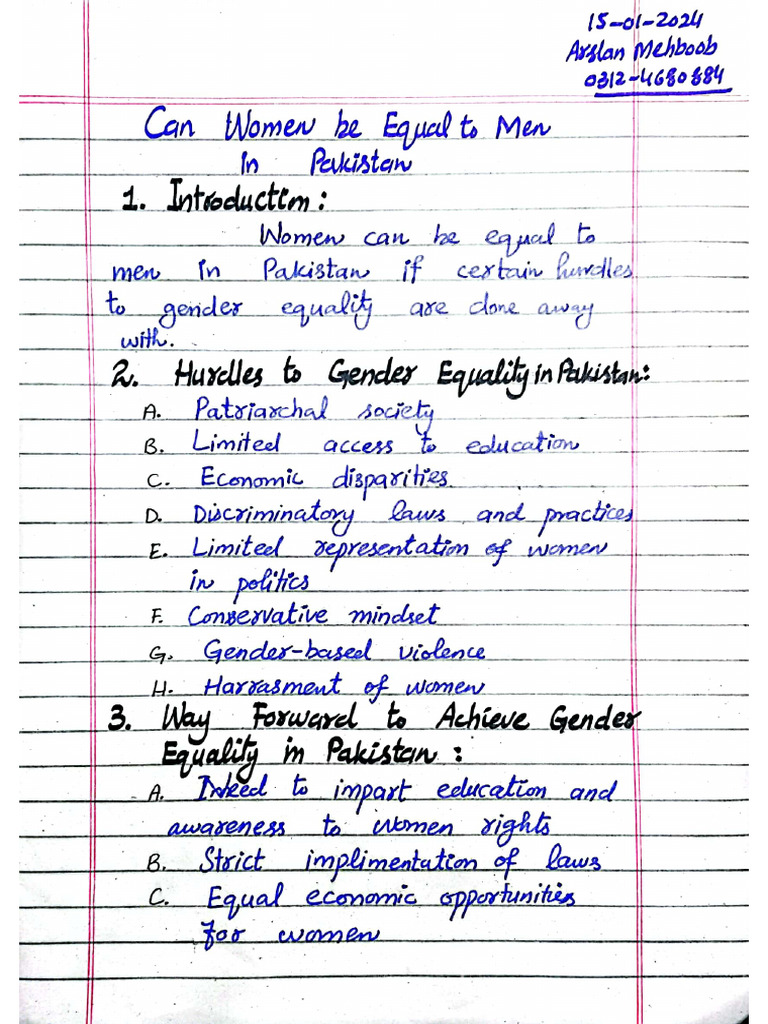 15-01-2024
Arslan Mehboob
0312-4680884
Can Women be Equal to Men
in Pakistan
1. Introduction:
Women can be equal to
men in Pakistan if certain hurdles
to gender equality are done away
with.
2. Hurdles to Gender Equality in Pakistan:
A. Patriarchal society
B. Limited access to education
C. Economic disparities
D. Discriminatory laws and practices
E. Limited representation of women
in politics
F. Conservative mindset
G. Gender-based violence
H. Harrasment of women
3. Way Forward to Achieve Gender
Equality in Pakistan:
A. Need to impart education and
awareness to women rights
B. Strict implimentation of laws
C. Equal economic opportunities
for women